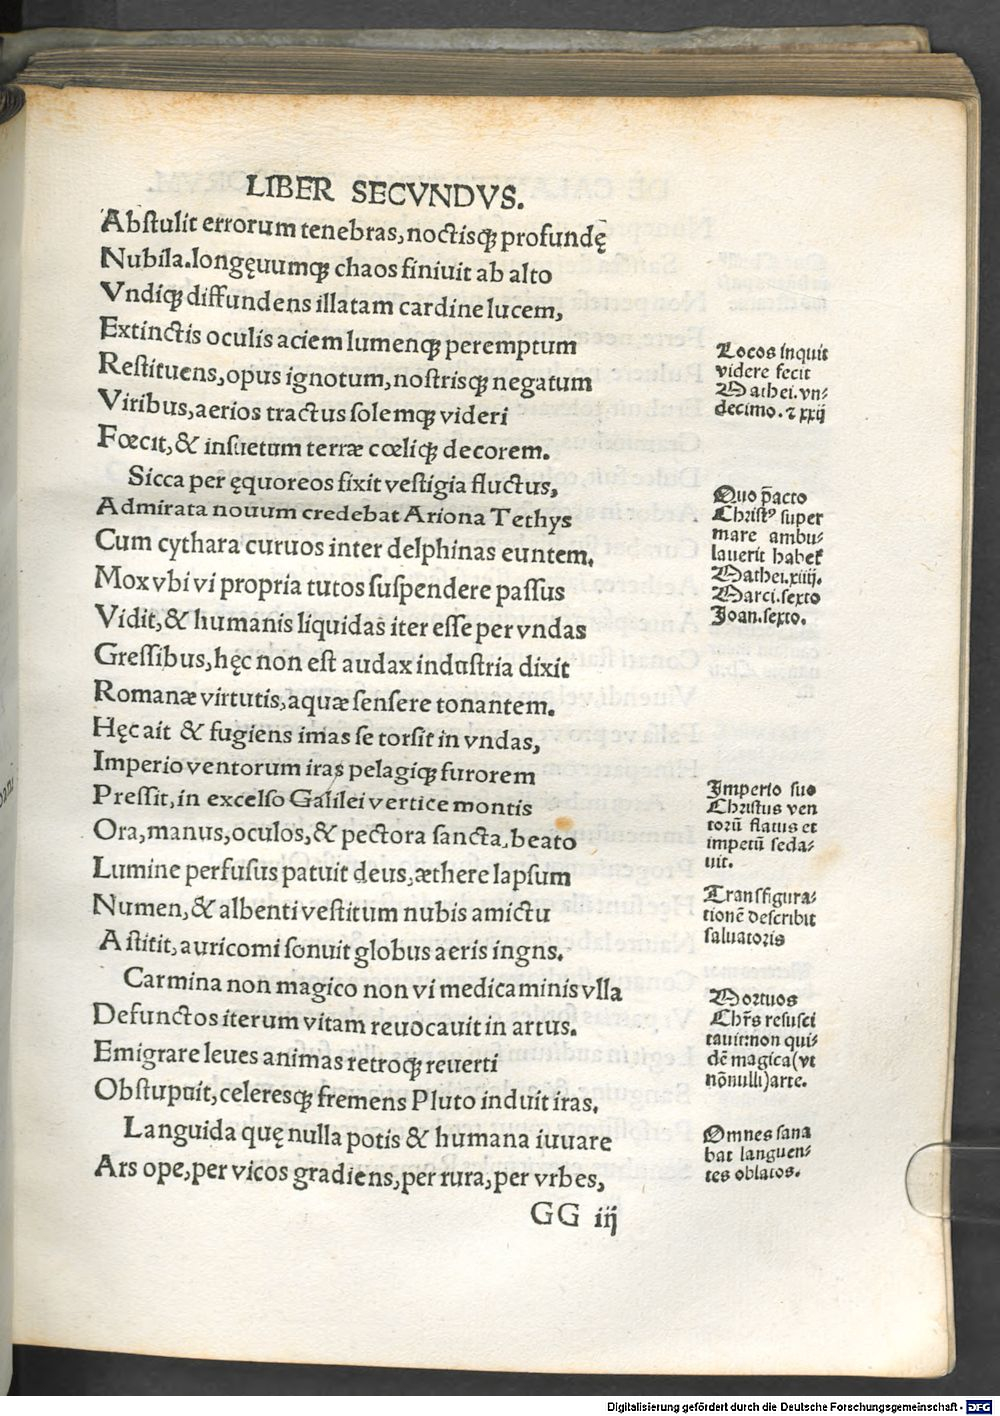 LIBER SECVNDVS.
Abſtulit errorum tenebras, noctisqꝫ profundę
Nubila. longęuumqꝫ chaos finiuit ab alto
Vndiqꝫ diffundens illatam cardine lucem,
Extinctis oculis aciem lumenqꝫ peremptum
Reſtituens, opus ignotum, noſtrisqꝫ negatum
Viribus, aerios tractus ſolemqꝫ videri
Fœcit, & inſuetum terræ cœliqꝫ decorem.
Sicca per ęquoreos fixit veſtigia fluctus,
Admirata nouum credebat Ariona Tethys
Cum cythara curuos inter delphinas euntem.
Mox vbi vi propria tutos ſuſpendere paſſus
Vidit, & humanis liquidas iter eſſe per vndas
Greſſibus, hęc non eſt audax induſtria dixit
Romanæ virtutis, aquæ ſenſere tonantem.
Hęc ait & fugiens imas ſe torſit in vndas,
Imperio ventorum iras pelagiqꝫ furorem
Preſſit, in excelſo Galilei vertice montis
Ora, manus, oculos, & pectora ſancta, beato
Lumine perfuſus patuit deus, æthere lapſum
Numen, & albenti veſtitum nubis amictu
Aſtitit, auricomi ſonuit globus aeris ingns.
Carmina non magico non vi medicaminis vlla
Defunctos iterum vitam reuocauit in artus.
Emigrare leues animas retroqꝫ reuerti
Obſtupuit, celeresqꝫ fremens Pluto induit iras.
Languida quę nulla potis & humana iuuare
Ars ope, per vicos gradiens, per rura, per vrbes,
GG iij
Locos inquit
videre fecit
Mathei. vn⸗
decimo. ⁊ xxij
Quo p̄acto
Chriſtꝰ ſuper
mare ambu⸗
lauerit habet̉
Mathei. xiiij.
Marci. ſexto
Joan. ſexto.
Imperio ſuo
Chriſtus ven
torū flatus et
impetū ſeda⸗
uit.
Tranſfigura⸗
tionē deſcribit
ſaluatoris
Mortuos
Chr̄s reſuſci
tauit: non qui⸗
dē magica (vt
nōnulli) arte.
Omnes ſana
bat languen⸗
tes oblatos.
Digitalisierung gefördert durch die Deutsche Forschungsgemeinschaft - DFG